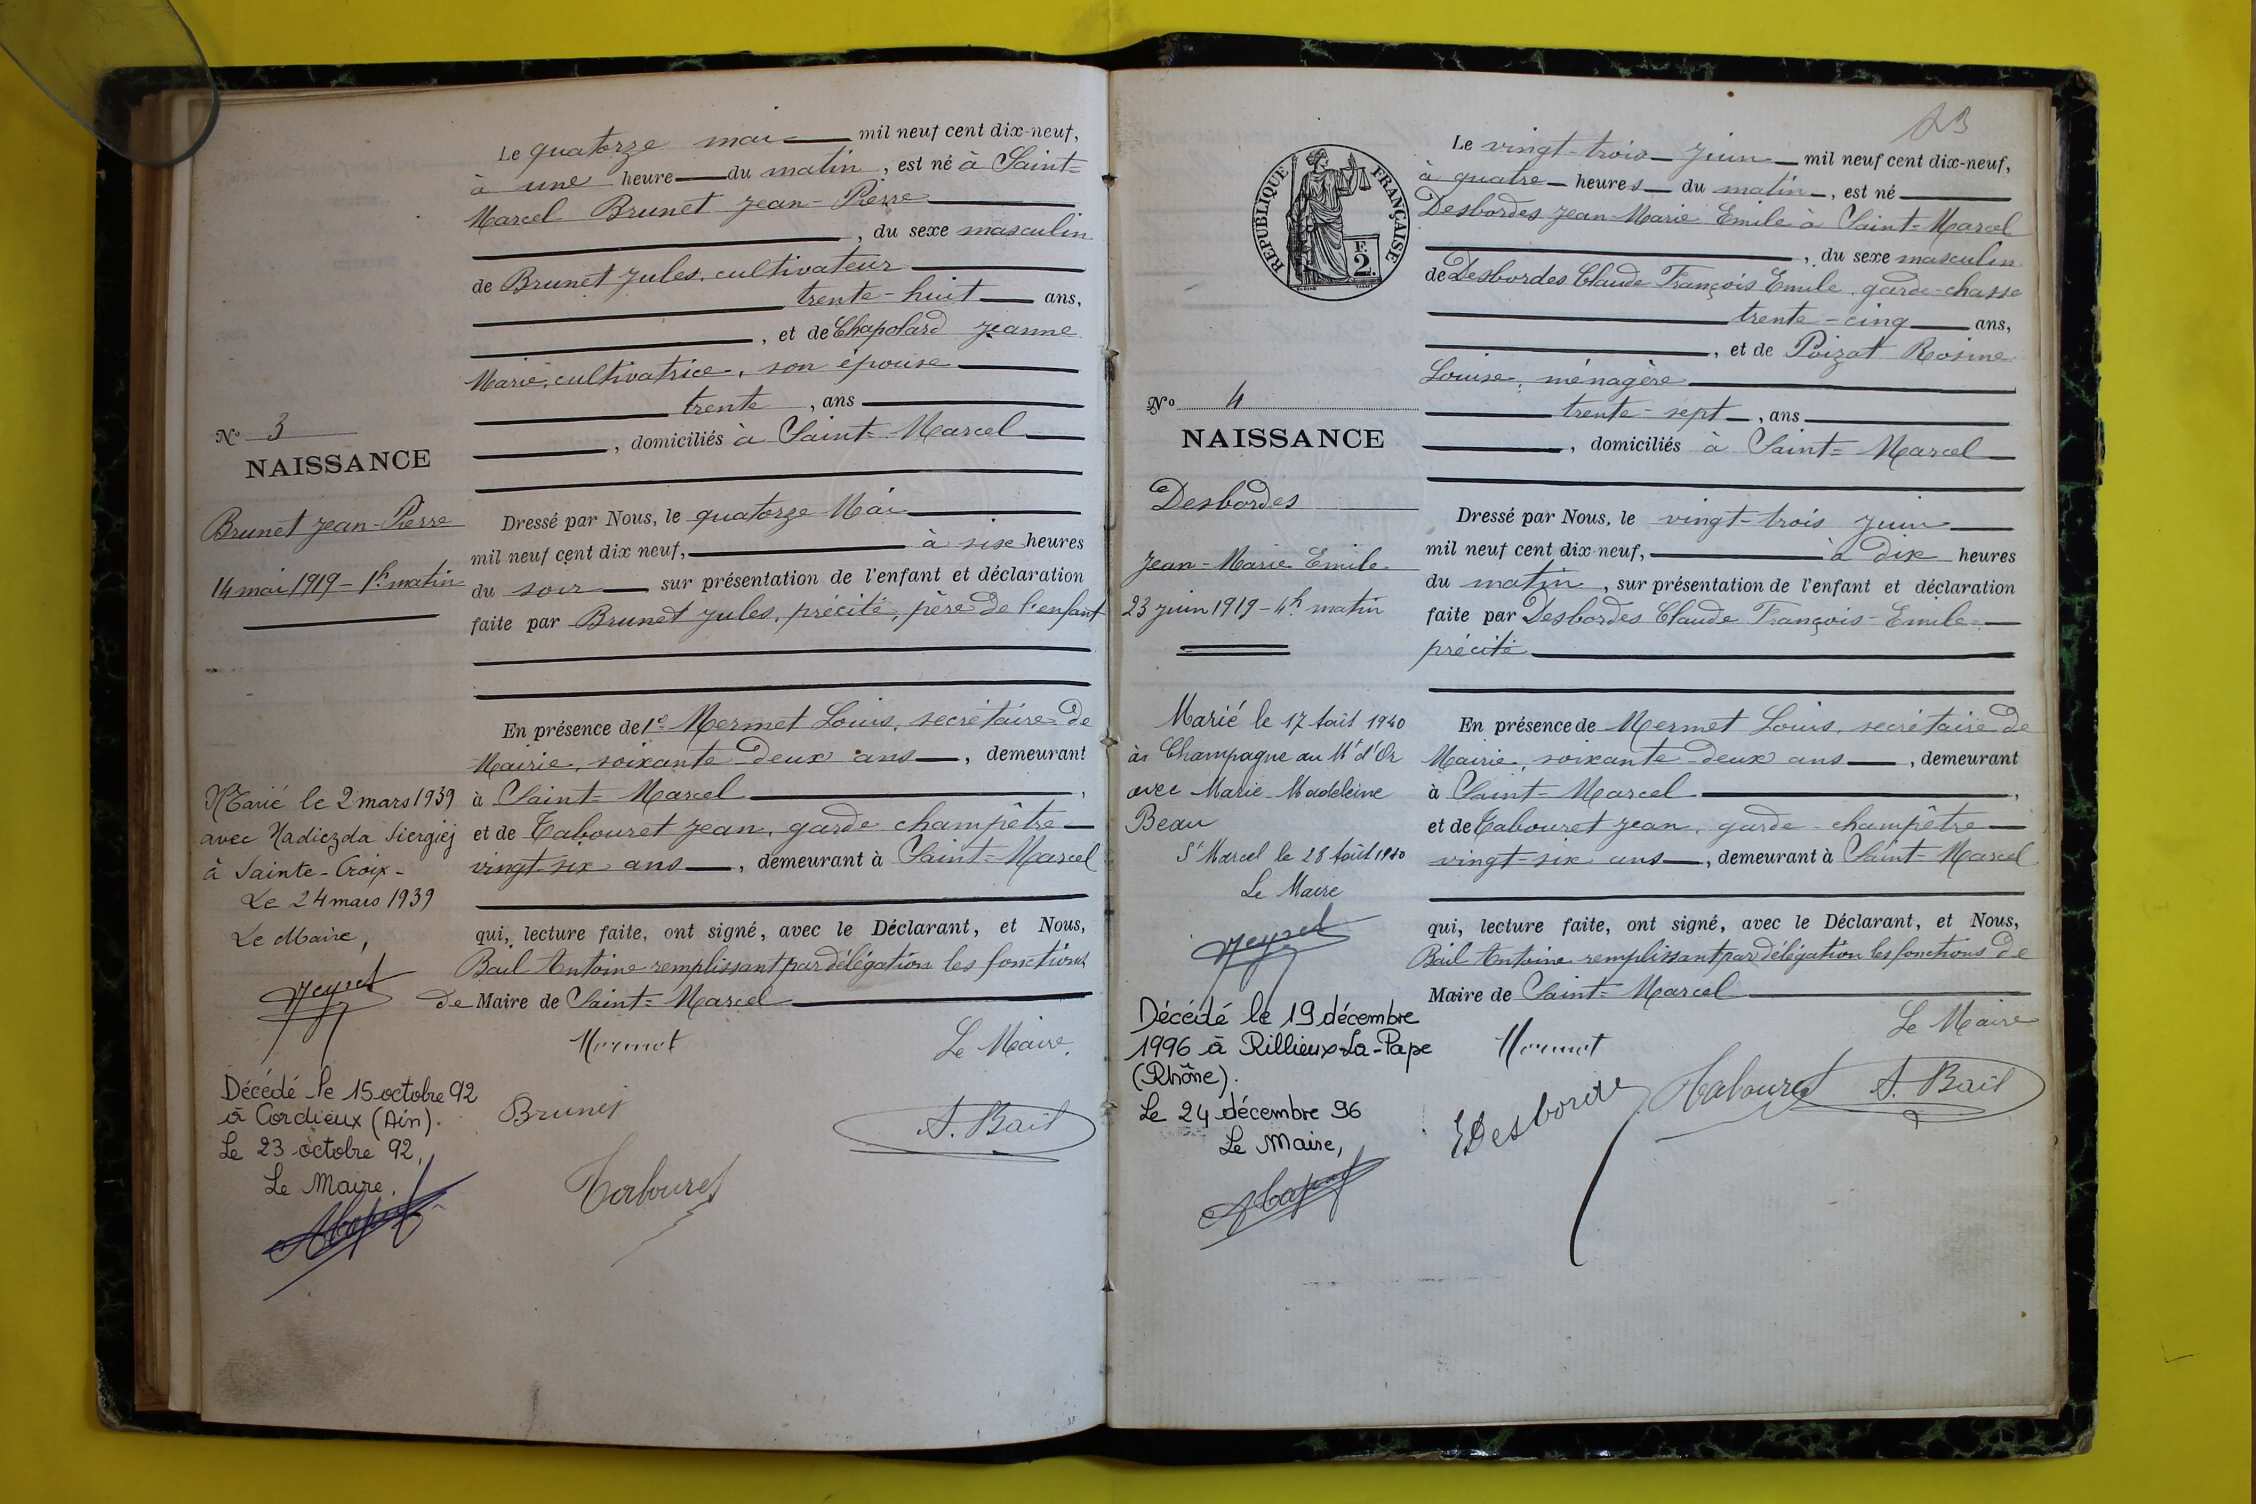 Le quatorze mai mil neuf cent dix-neuf,
à une heure du matin, est né à Saint-
Marcel Brunet Jean-Pierre
, du sexe masculin
de Brunet Jules, cultivateur
trente-huit ans,
, et de Chapolard Jeanne
Marie, cultivatrice, son épouse
trente, ans
, domiciliés à Saint-Marcel
No 3
NAISSANCE
Brunet Jean-Pierre
14 mai 1919 - 1h matin
Dressé par Nous, le quatorze Mai
mil neuf cent dix neuf, à six heures
du soir sur présentation de l'enfant et déclaration
faite par Brunet Jules, précité, père de l'enfant
En présence de 1e Mermet Louis, secrétaire de
Mairie, soixante deux ans, demeurant
à Saint-Marcel,
et de Tabouret Jean, garde champêtre
vingt-six ans, demeurant à Saint-Marcel
qui, lecture faite, ont signé, avec le Déclarant, et Nous,
Bail Antoine remplissant par délégation les fonctions
de Maire de Saint-Marcel
Marié le 2 mars 1939
avec Nadiezda Siergiej
à Sainte-Croix-
Le 24 mars 1939
Le Maire,
Décédé le 15 octobre 92
à Cordieux (Ain).
Le 23 octobre 92,
Le Maire.
Mermet
Le Maire,
Brunet
A. Bail
Tabouret
23
RÉPUBLIQUE FRANÇAISE
F.
2.
Le vingt-trois Juin mil neuf cent dix-neuf,
à quatre heures du matin, est né
Desbordes Jean-Marie Emile à Saint-Marcel
, du sexe masculin
de Desbordes Claude François Emile, garde-chasse
trente-cinq ans,
, et de Poizat Rosine
Louise, ménagère
trente-sept, ans
, domiciliés à Saint-Marcel
No 4
NAISSANCE
Desbordes
Jean-Marie Emile
23 juin 1919 - 4h matin
Dressé par Nous, le vingt-trois Juin
mil neuf cent dix neuf, à dix heures
du matin, sur présentation de l'enfant et déclaration
faite par Desbordes Claude François-Emile
précité
En présence de Mermet Louis, secrétaire de
Mairie, soixante-deux ans, demeurant
à Saint-Marcel,
et de Tabouret Jean, garde-champêtre
vingt-six ans, demeurant à Saint-Marcel
qui, lecture faite, ont signé, avec le Déclarant, et Nous,
Bail Antoine remplissant par délégation les fonctions de
Maire de Saint-Marcel
Marié le 17 Août 1940
à Champagne au Mt d'Or
avec Marie Madeleine
Beau
St Marcel le 28 Août 1940
Le Maire
Décédé le 19 décembre
1996 à Rillieux-La-Pape
(Rhône).
Le 24 décembre 96
Le Maire,
Le Maire
Mermet
EDesbordes
Tabouret
A. Bail